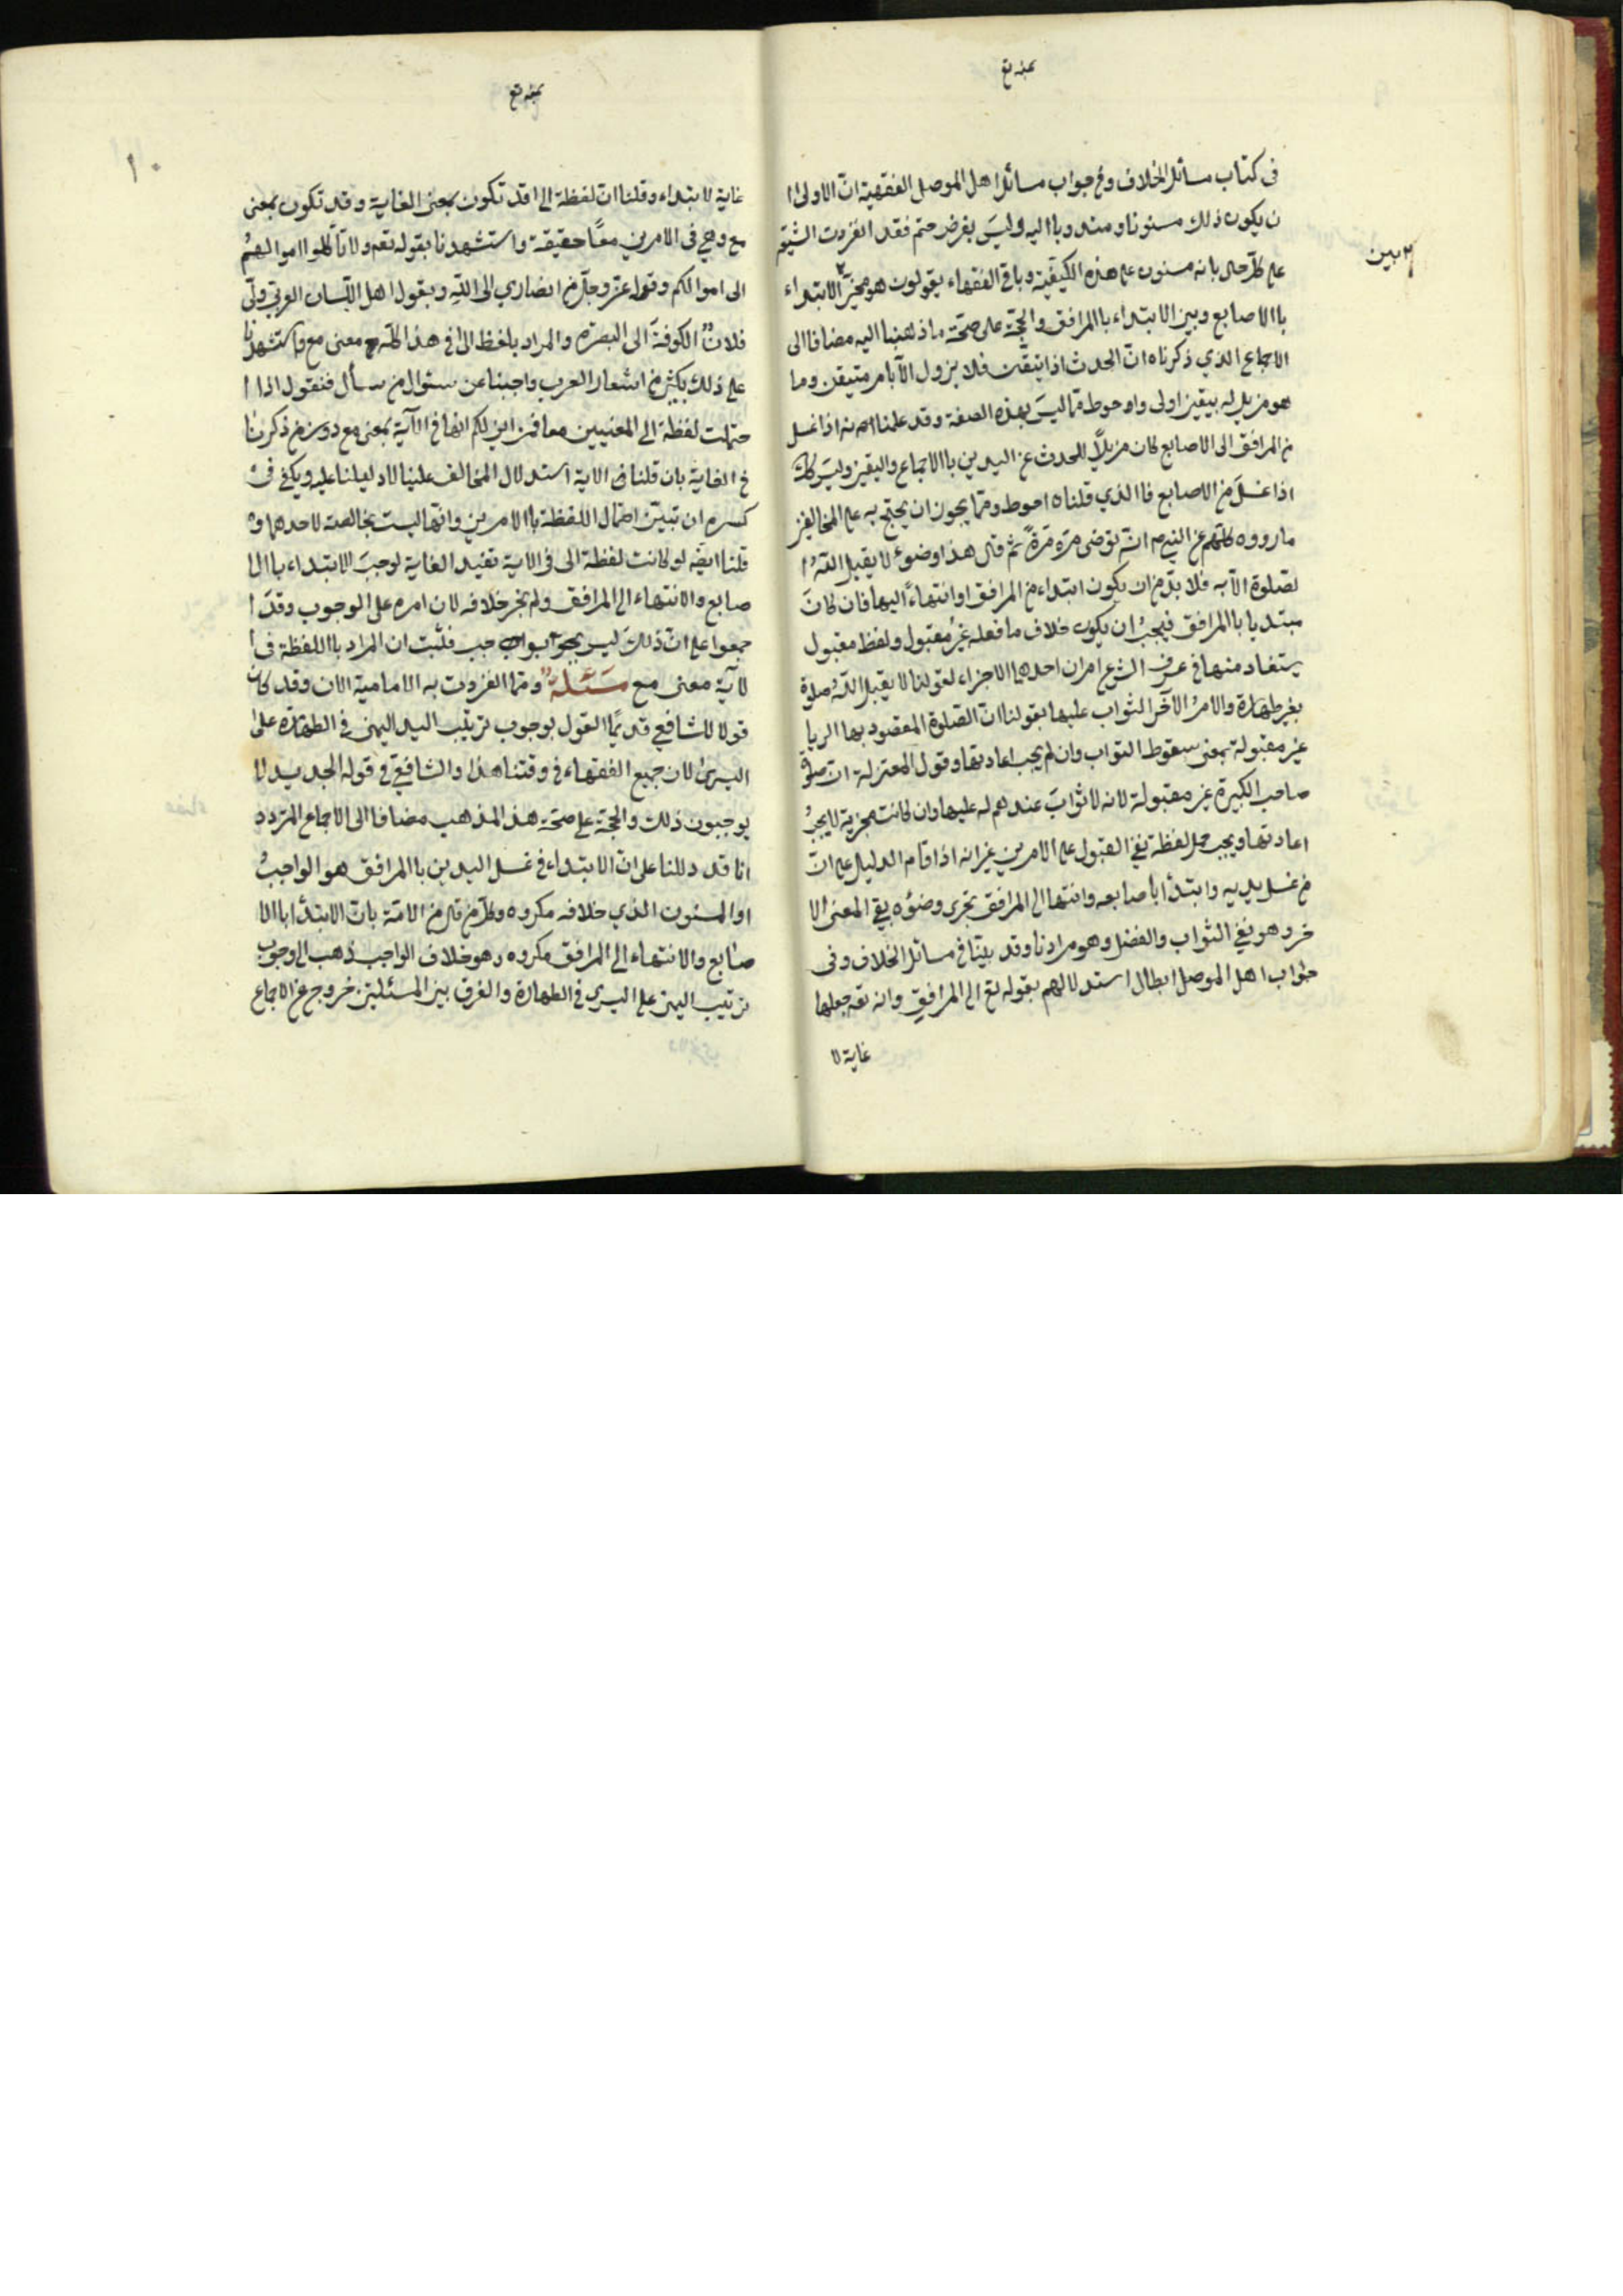 في كتاب مسائل الخلاف وفي جواب مسائل اهل الموصل الفقهية انّ الاولى ا
ن يكون ذلك مسنونا ومندوبا اليه وليسَ بفرض حتم فقد انفردت الشيعة
على كلّ حال بانه مسنون على هذه الكيفيّة وباقي الفقهاء يقولون هو مخيّر الابتداء
٢ بين
باالاصابع وبين الابتداء باالمرافق والحجّة على صحّة ما ذهبنا اليه مضافا الى
الاجماع الذي ذكرناه انّ الحدث اذا تيقّن فلا يزول الّا بامر متيقن وما
هو مزيل له بيقين اولى واحوط ممّا ليسَ بهذه الصفة وقد علمنا انه اذا غسل
من المرافق الى الاصابع كان مزيلًا للحدث عن اليدين باالاجماع واليقين وليسَ كذلك
اذا غسلَ من الاصابع فاالذي قلناه احوط وممّا يجوز ان يحتج به على المخالفين
ما رووه كلّهم عن النبي ص انّه توضى مرّه مرّةً ثم قال هذا وضوء لا يقبل الله ا
لصّلوة الّا به فلا بدّ من ان يكون ابتداء من المرافق او انتهاءً اليها فان كانَ
مبتديا باالمرافق فيجبُ ان يكون خلاف ما فعله غيرُ مقبول ولفظ مقبول
يستفاد منها في عرف الشرع امران احدهما الاجزاء لقولنا لا يقبل اللهُ صلوة
بغير طهارة والامرُ الآخر الثواب عليها بقولنا انّ الصّلوة المقصود بها الريا
غير مقبولة بمعنى سقوط الثواب وان لم يجب اعادتها وقول المعتزلة انّ صلوة
صاحب الكبيرة غير مقبولة لانه لا ثوابَ عندهم له عليها وان كانت مجزية لا يجبُ
اعادتها ويجب حمل لفظة نفي القبول على الامرين غير انه اذا قام الدليل على انّ
من غسل يديه وابتدأ باصابعه وانتها الى المرافق يجزى وضوُه بقي المعنى الا
خر وهو نفي الثواب والفضل وهو مرادنا وقد بيّنا في مسائل الخلاف وفى
جواب اهل الموصل ابطال استدلالهم بقوله تع الى المرافقِ وانه تعه جعلها
غاية لا
١٠
غاية لابتداء وقلنا انّ لفظة الى قد تكون بمعنى الغاية وقد تكون بمعنى
مع وهي في الامرين معًا حقيقة واستشهدنا بقوله تعه ولا تأكلوا اموالهمُ
الى اموالكم وقوله عزّ وجلّ من انصاري الى اللهِ وبقول اهل اللّسان العربي ولّى
فلانٌ الكوفةَ الى البصرة والمراد بلفظ الى في هذا كلّه معنى مع واستشهدنا
على ذلك بكثير من اشعار العرب واجبنا عن سئوال من سأل فنقول اذا ا
حتملت لفظة الى المعنيين معا فمن اين لكم انها في الآية بمعنى مع دون ما ذكرنا
في الغاية بان قلنا في الاية استدلال المخالف علينا لا دليلنا عليه ويكفى فى
كسره ان تبيّن احتمال اللفظة باالامرين وانها ليست بخالصة لاحدهما و
قلنا ايضه لو كانت لفظة الى في الاية تفيد الغاية لوجبَ الابتداء باالا
صابع والانتهاء الى المرافق ولم يجز خلافه لان امره على الوجوب وقدَ ا
جمعوا على انّ ذلكَ ليس بواجب فثبت ان المراد باللفظة فى ا
لآية معنى مع مسئلة وممّا انفردت به الامامية الان وقد كان
قولا للشافعي قديمًا القول بوجوب ترتيب اليد اليمنى في الطهارة على
اليسرى لان جميع الفقهاء في وقتنا هذا والشافعي في قوله الجديد لا
يوجبون ذلك والحجّة على صحّة هذ المذهب مضافا الى الاجماع المتردد
انا قد دللنا على انّ الابتداء في غسل اليدين باالمرافق هو الواجبُ
او المسنون الذي خلافه مكروه وكلّ من قال من الامّة بانّ الابتداء باالا
صابع والانتهاء الى المرافق مكروه وهو خلاف الواجب ذهب الى وجوب
ترتيب اليمنى على اليسرى في الطهارة والفرق بين المسئلتين خروج عن الاجماع